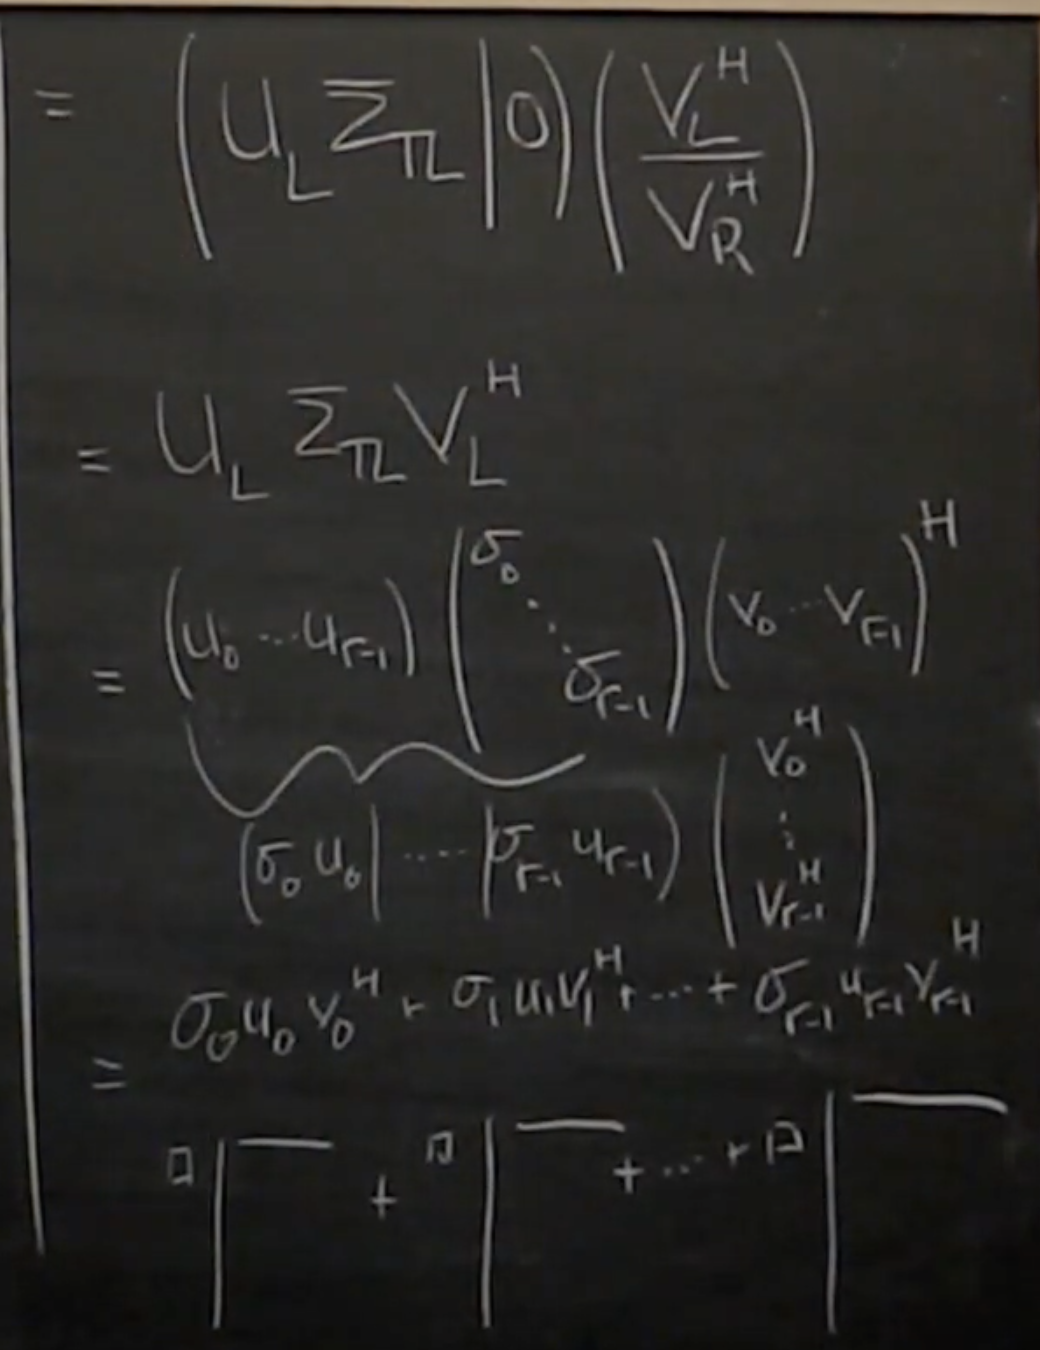 = ( U_L Σ_TL | 0 ) ( V_L^H / V_R^H )
= U_L Σ_TL V_L^H
= ( u_0 ... u_{r-1} ) ( σ_0 ⋱ σ_{r-1} ) ( v_0 ... v_{r-1} )^H
( σ_0 u_0 | ... | σ_{r-1} u_{r-1} ) ( v_0^H ⋮ v_{r-1}^H )
= σ_0 u_0 v_0^H + σ_1 u_1 v_1^H + ... + σ_{r-1} u_{r-1} v_{r-1}^H
□ | — + □ | — + ... + □ | —